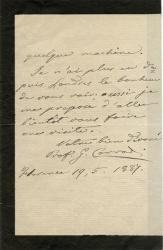 quelque machine.
Je n'ai plus eu de-
puis Londres le bonheur
de vous voir, aussi je
me propose d'aller
bientôt vous faire
une visite.
Votre bien dévoué
Prof. G.
Florence 19. 5. 1887.